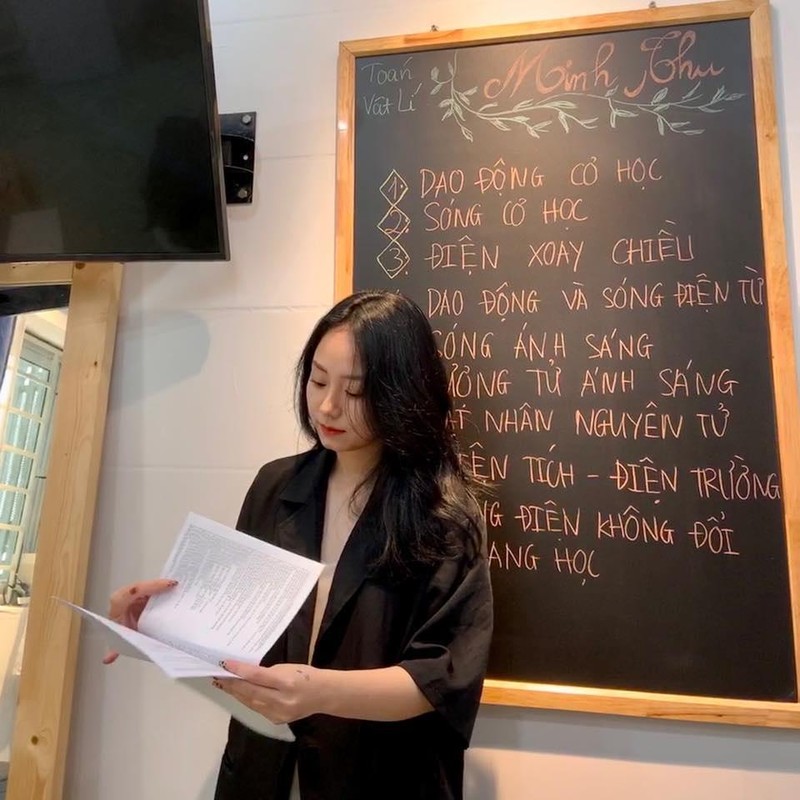 Toán
Vật Lí
Minh Thu
1. DAO ĐỘNG CƠ HỌC
2. SÓNG CƠ HỌC
3. ĐIỆN XOAY CHIỀU
DAO ĐỘNG VÀ SÓNG ĐIỆN TỪ
SÓNG ÁNH SÁNG
ƯỢNG TỬ ÁNH SÁNG
ẠT NHÂN NGUYÊN TỬ
IỆN TÍCH - ĐIỆN TRƯỜNG
NG ĐIỆN KHÔNG ĐỔI
ANG HỌC